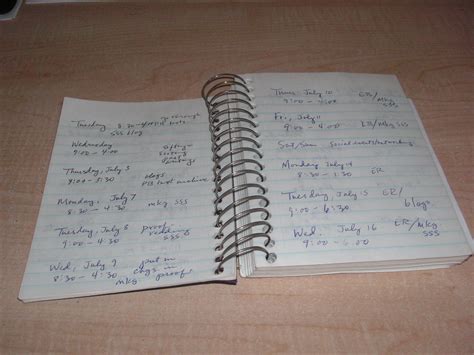 Tuesday 8:30 - 4:00
SSS blog
Wednesday
9:00 - 4:00
Thursday, July 3
9:00 - 3:30
blogs
archive
Monday, July 7
8:30 - 4:30 mkg SSS
Tuesday, July 8
9:00 - 4:30
proof
reading
SSS
Wed, July 9 put in
8:30 - 4:30 chgs in
mkg proof
Thurs, July 10 ER/
9:00 - 4:00 mkg
SSS
Fri, July 11
9:00 - 4:00 ER/mkg SSS
Sat/Sun social events/networking
Monday, July 14
8:30 - 4:30 ER
Tuesday, July 15 ER/
8:30 - 6:30 blogs
Wed, July 16 ER/mkg
9:00 - 6:00 SSS